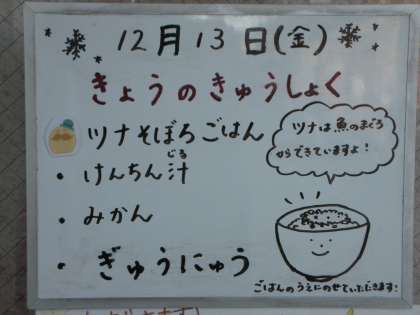 12月13日(金)
きょうのきゅうしょく
ツナそぼろごはん
・けんちん汁
じる
・みかん
・ぎゅうにゅう
ツナは魚のまぐろ
からできていますよ!
ごはんのうえにのせていただきます!